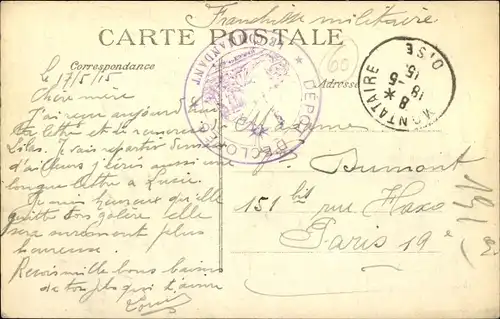 Franchise militaire
CARTE POSTALE
Correspondance
Adresse
le 17/5/15
Chère mère
J'ai reçu aujourd'hui
ta lettre et
Lilas. Je vais repartir
d'ailleurs j'écris aussi une
longue lettre à Lucie.
Je suis heureux qu'elle
quitte son galère elle
sera surement plus
heureuse.
Reçois mille bons baisers
de ton fils qui t'aime
Louis
Madame
Dumont
151 bis rue Haxo
Paris 19e
COMMANDANT
DEPOT D'ECLOPES
MONTATAIRE
OISE
8 *
18 -5
15
60